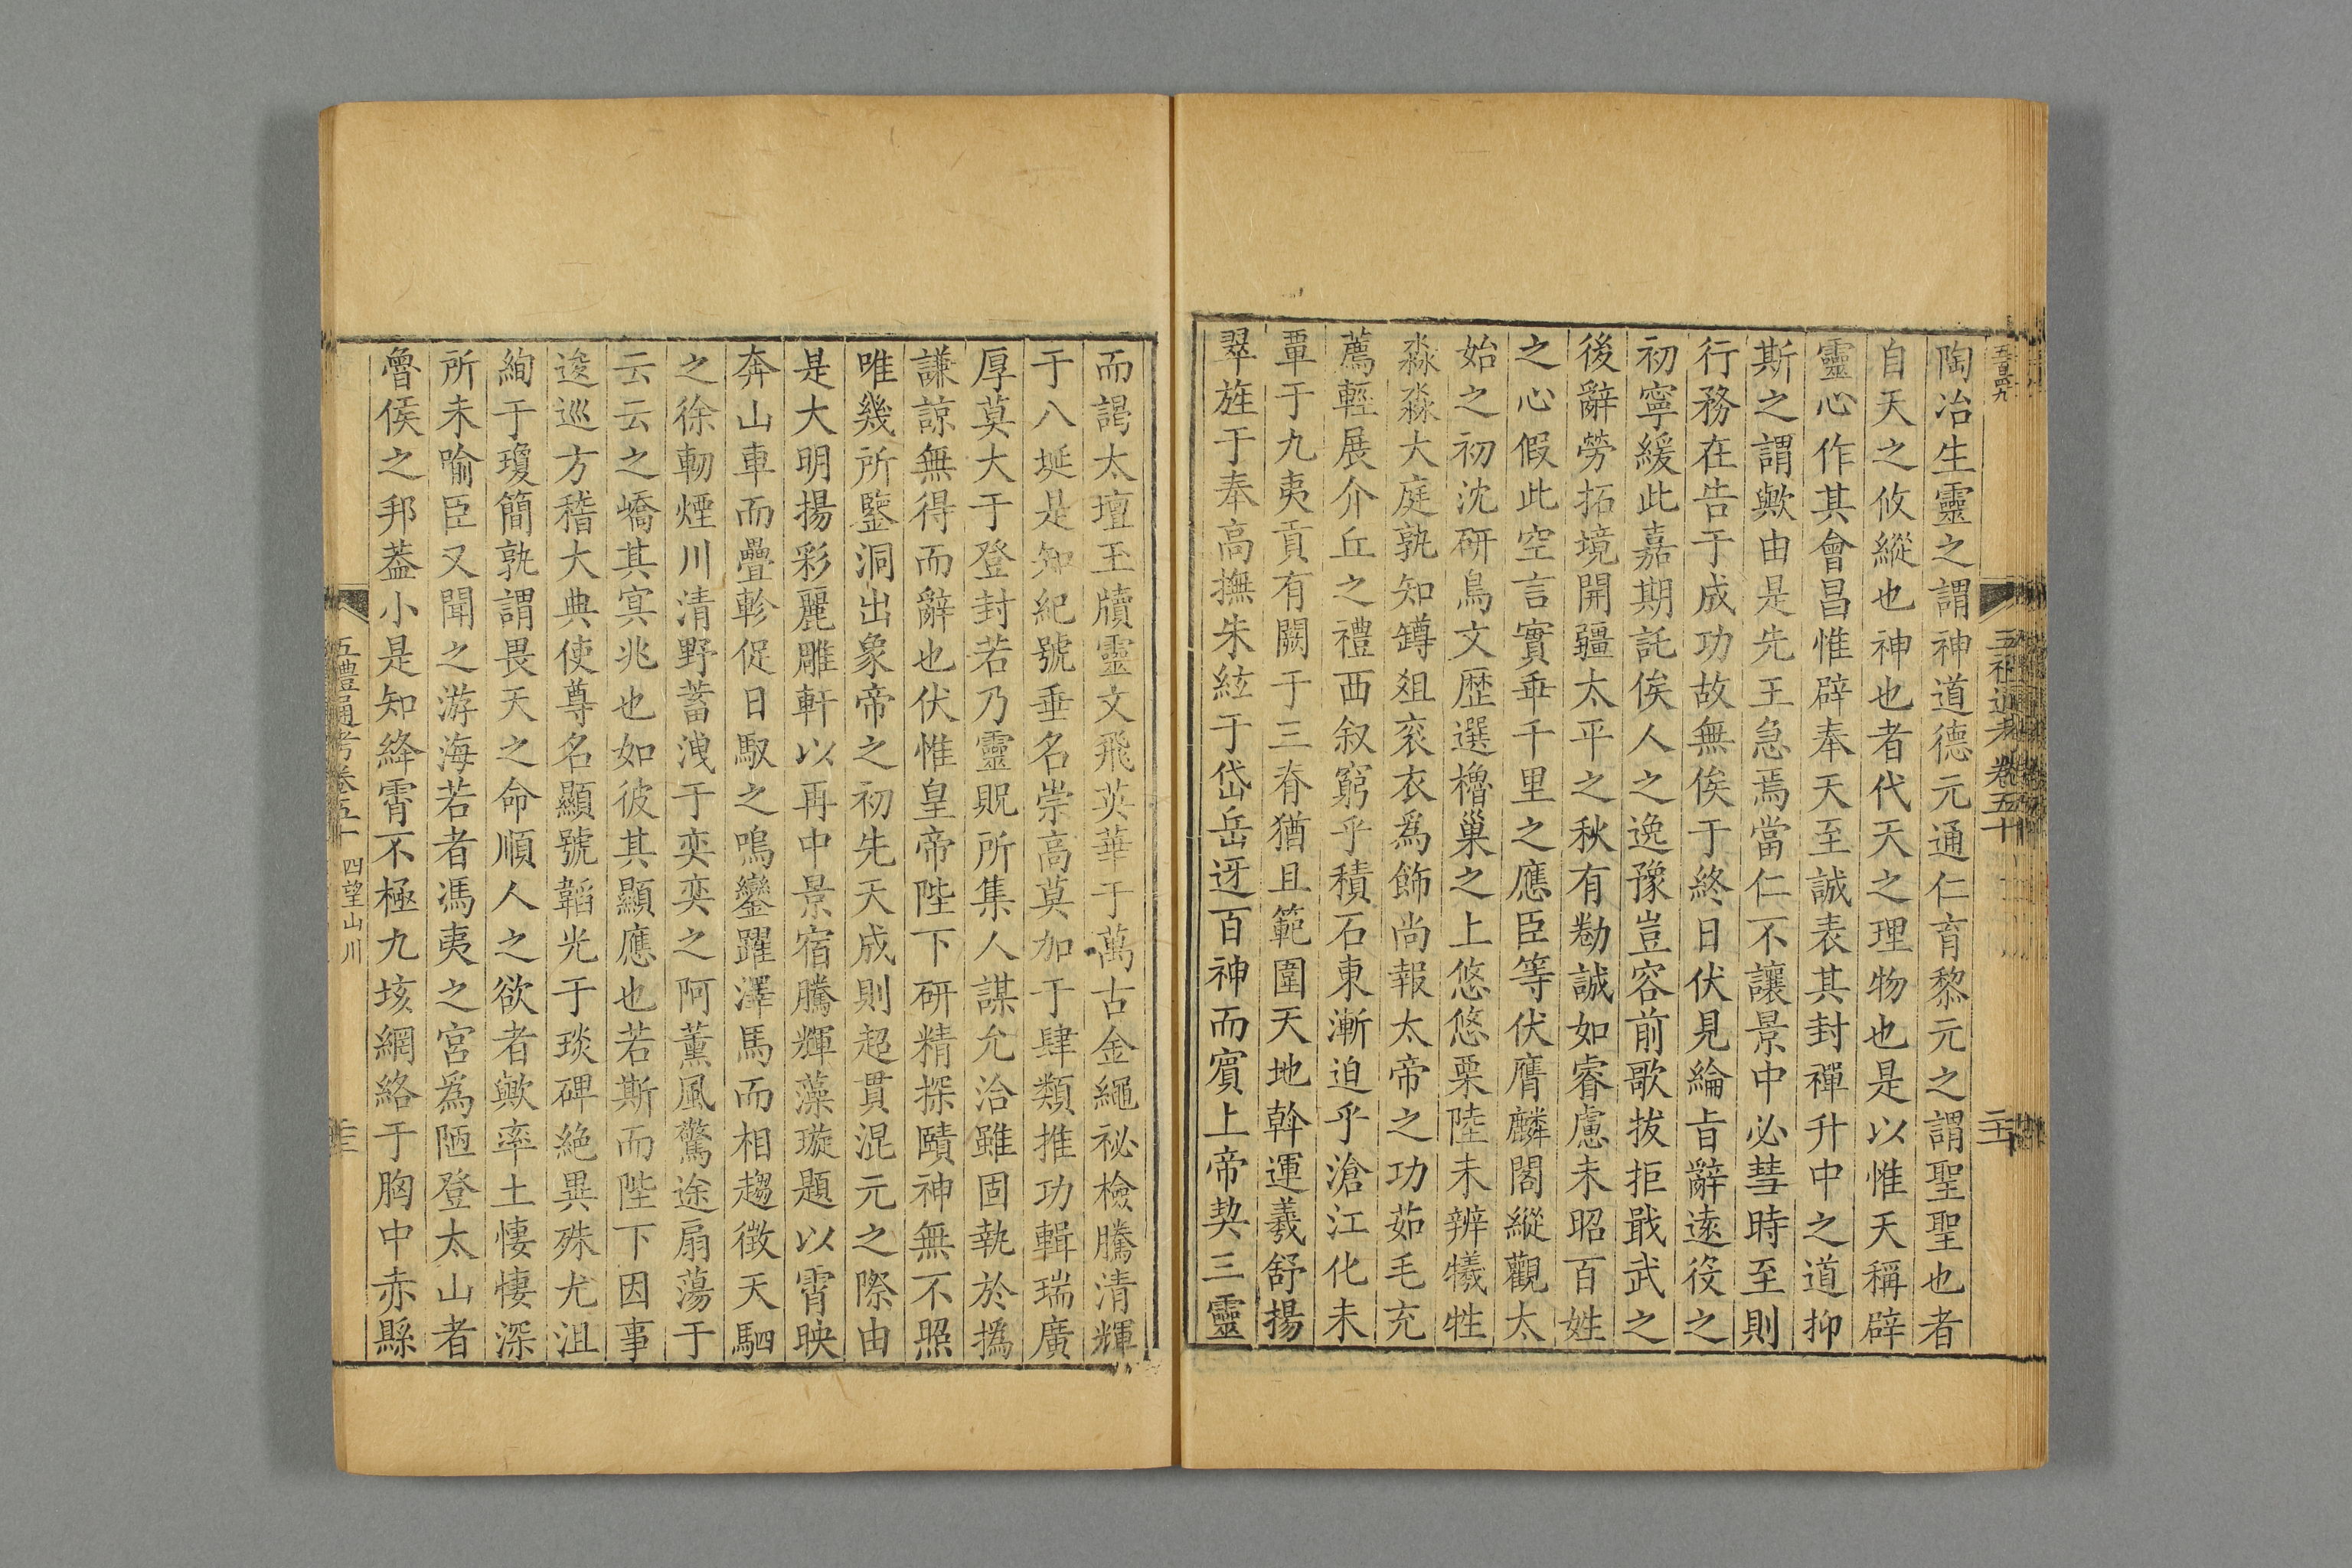 五百四九
五禮通考卷五十
二十
陶冶生靈之謂神道德元通仁育黎元之謂聖聖也者
自天之攸縱也神也者代天之理物也是以惟天稱辟
靈心作其會昌惟辟奉天至誠表其封禪升中之道抑
斯之謂歟由是先王急焉當仁不讓景中必彗時至則
行務在告于成功故無俟于終日伏見綸旨辭遠役之
初寧緩此嘉期託俟人之逸豫豈容前歌拔拒戢武之
後辭勞拓境開疆太平之秋有勌誠如睿慮未昭百姓
之心假此空言實乖千里之應臣等伏膺麟閣縱觀太
始之初沈研鳥文歷選櫓巢之上悠悠栗陸未辨犧牲
淼淼大庭孰知罇俎衮衣爲飾尚報太帝之功茹毛充
薦輕展介丘之禮西叙窮乎積石東漸迫乎滄江化未
覃于九夷貢有闕于三脊猶且範圍天地斡運羲舒揚
翠旌于奉高撫朱絃于岱岳迓百神而賓上帝契三靈
而謁太壇玉牘靈文飛英華于萬古金繩祕檢騰清輝
于八埏是知紀號垂名崇高莫加于肆類推功輯瑞廣
厚莫大于登封若乃靈貺所集人謀允洽雖固執於撝
謙諒無得而辭也伏惟皇帝陛下研精探賾神無不照
唯幾所鑒洞出象帝之初先天成則超貫混元之際由
是大明揚彩麗雕軒以再中景宿騰輝藻璇題以霄映
奔山車而疊軫促日馭之鳴鑾躍澤馬而相趨徵天駟
之徐軔煙川清野蓄洩于奕奕之阿薰風驚途扇蕩于
云云之嶠其寘兆也如彼其顯應也若斯而陛下因事
逡巡方稽大典使尊名顯號韜光于琰碑絶異殊尤沮
絢于瓊簡孰謂畏天之命順人之欲者歟率土悽悽深
所未喻臣又聞之游海若者馮夷之宮爲陋登太山者
魯侯之邦葢小是知絳霄不極九垓網絡于胸中赤縣
五禮通考卷五十
四望山川